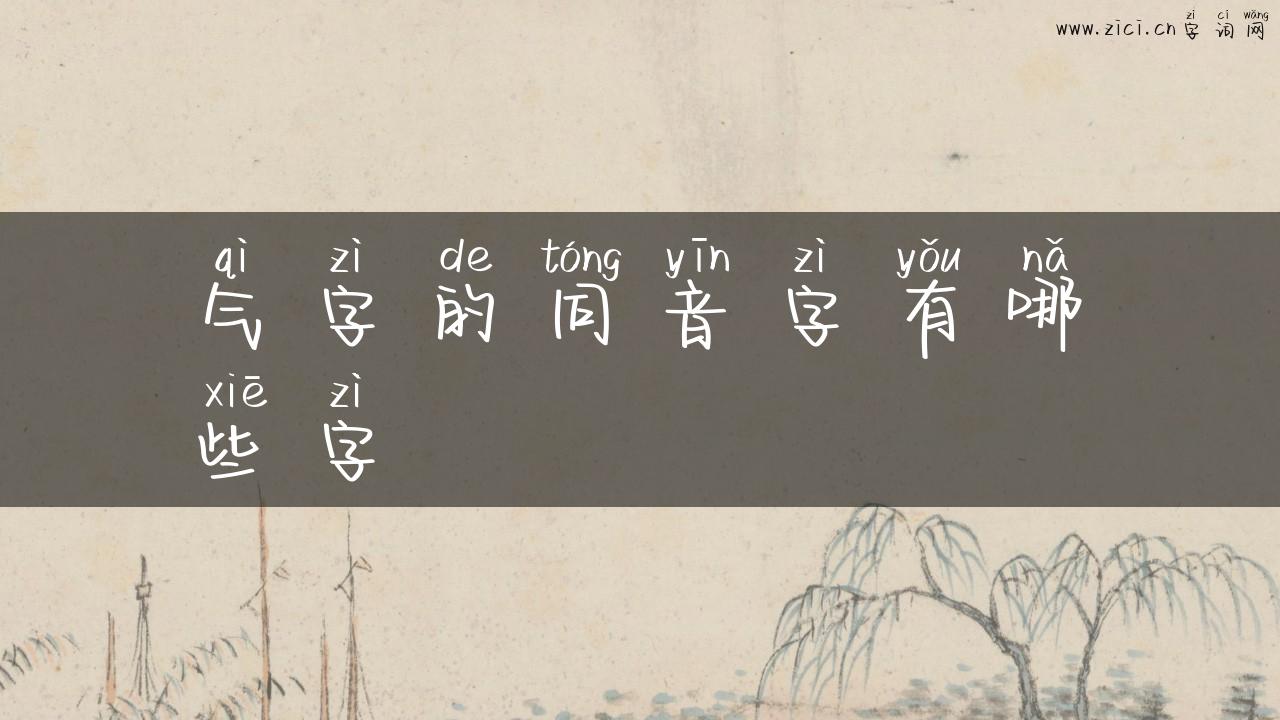 www.zici.cn zì cí wǎng
字词网
qì zì de tóng yīn zì yǒu nǎ
气字的同音字有哪
xiē zì
些字